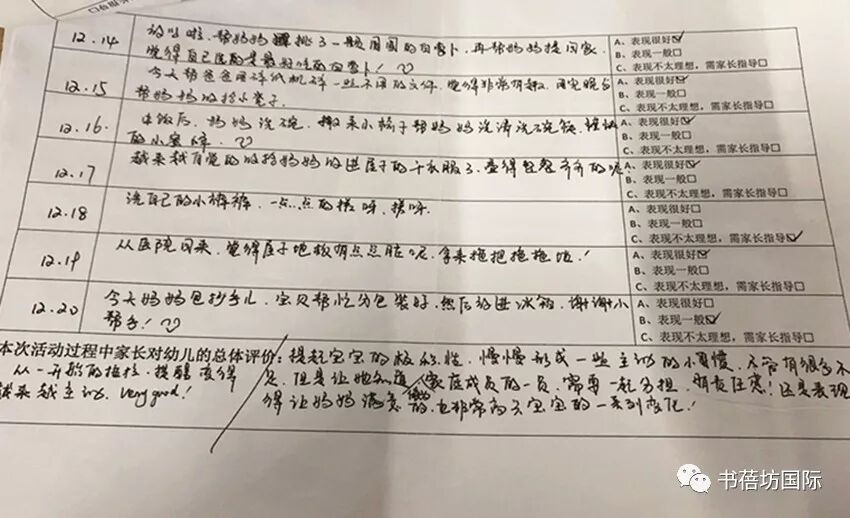 12.14
放学啦,帮妈妈挑了一颗圆圆的白萝卜,再帮妈妈提回家,
觉得自己选的是最好吃的白萝卜!
A、表现很好☑
B、表现一般□
C、表现不太理想,需家长指导□
12.15
今天帮爸爸用碎纸机碎一些不用的文件,觉得非常有趣,
帮妈妈收拾小凳子.
A、表现很好☑
B、表现一般□
C、表现不太理想,需家长指导□
12.16
午饭后,妈妈洗碗,搬来小椅子帮妈妈洗清洗碗筷,
的小蜜蜂.
A、表现很好☑
B、表现一般□
C、表现不太理想,需家长指导□
12.17
越来越自觉的收拾妈妈收进屋子的干衣服了,叠得整整齐齐的呢!
A、表现很好☑
B、表现一般□
C、表现不太理想,需家长指导□
12.18
洗自己的小裤裤,一点点的搓呀,搓呀.
A、表现很好□
B、表现一般□
C、表现不太理想,需家长指导☑
12.19
从医院回来,觉得屋子地板有点点脏呢,拿来拖把拖拖地!
A、表现很好☑
B、表现一般□
C、表现不太理想,需家长指导□
12.20
今天妈妈包抄手儿,宝贝帮忙分包装好,然后放进冰箱,谢谢小
帮手!
A、表现很好□
B、表现一般☑
C、表现不太理想,需家长指导□
本次活动过程中家长对幼儿的总体评价:提起宝宝的积极性,慢慢形成一些主动的小习惯,尽管有很多不
从一开始的拒绝,提醒变得
足,但是让她知道家庭成员的一员,需要一起分担,有责任感!还是表现
越来越主动,very good!
得让妈妈满意的,也非常高兴宝宝的一系列变化!
书蓓坊国际